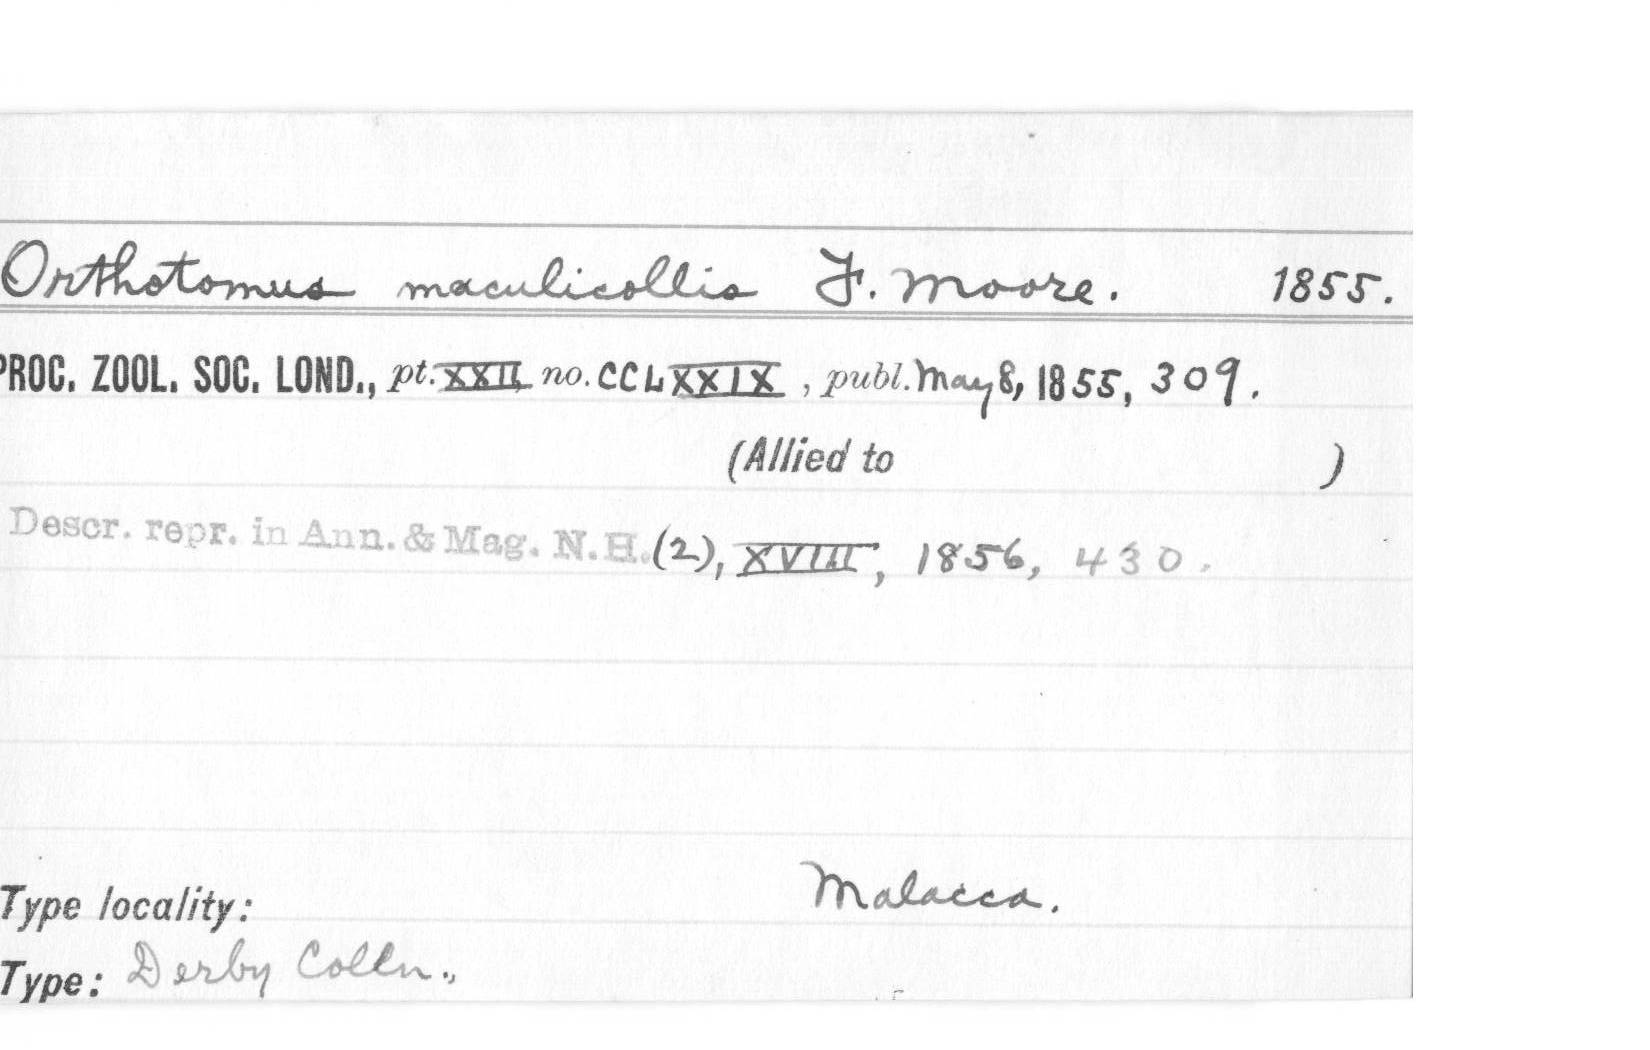 Orthotomus maculicollis F. Moore. 1855.
PROC. ZOOL. SOC. LOND., pt. XXII, no. CCLXXIX, publ. May 8, 1855, 309.
(Allied to )
Descr. repr. in Ann. & Mag. N.H. (2), XVIII, 1856, 430.
Type locality: Malacca.
Type: Derby Colln.,